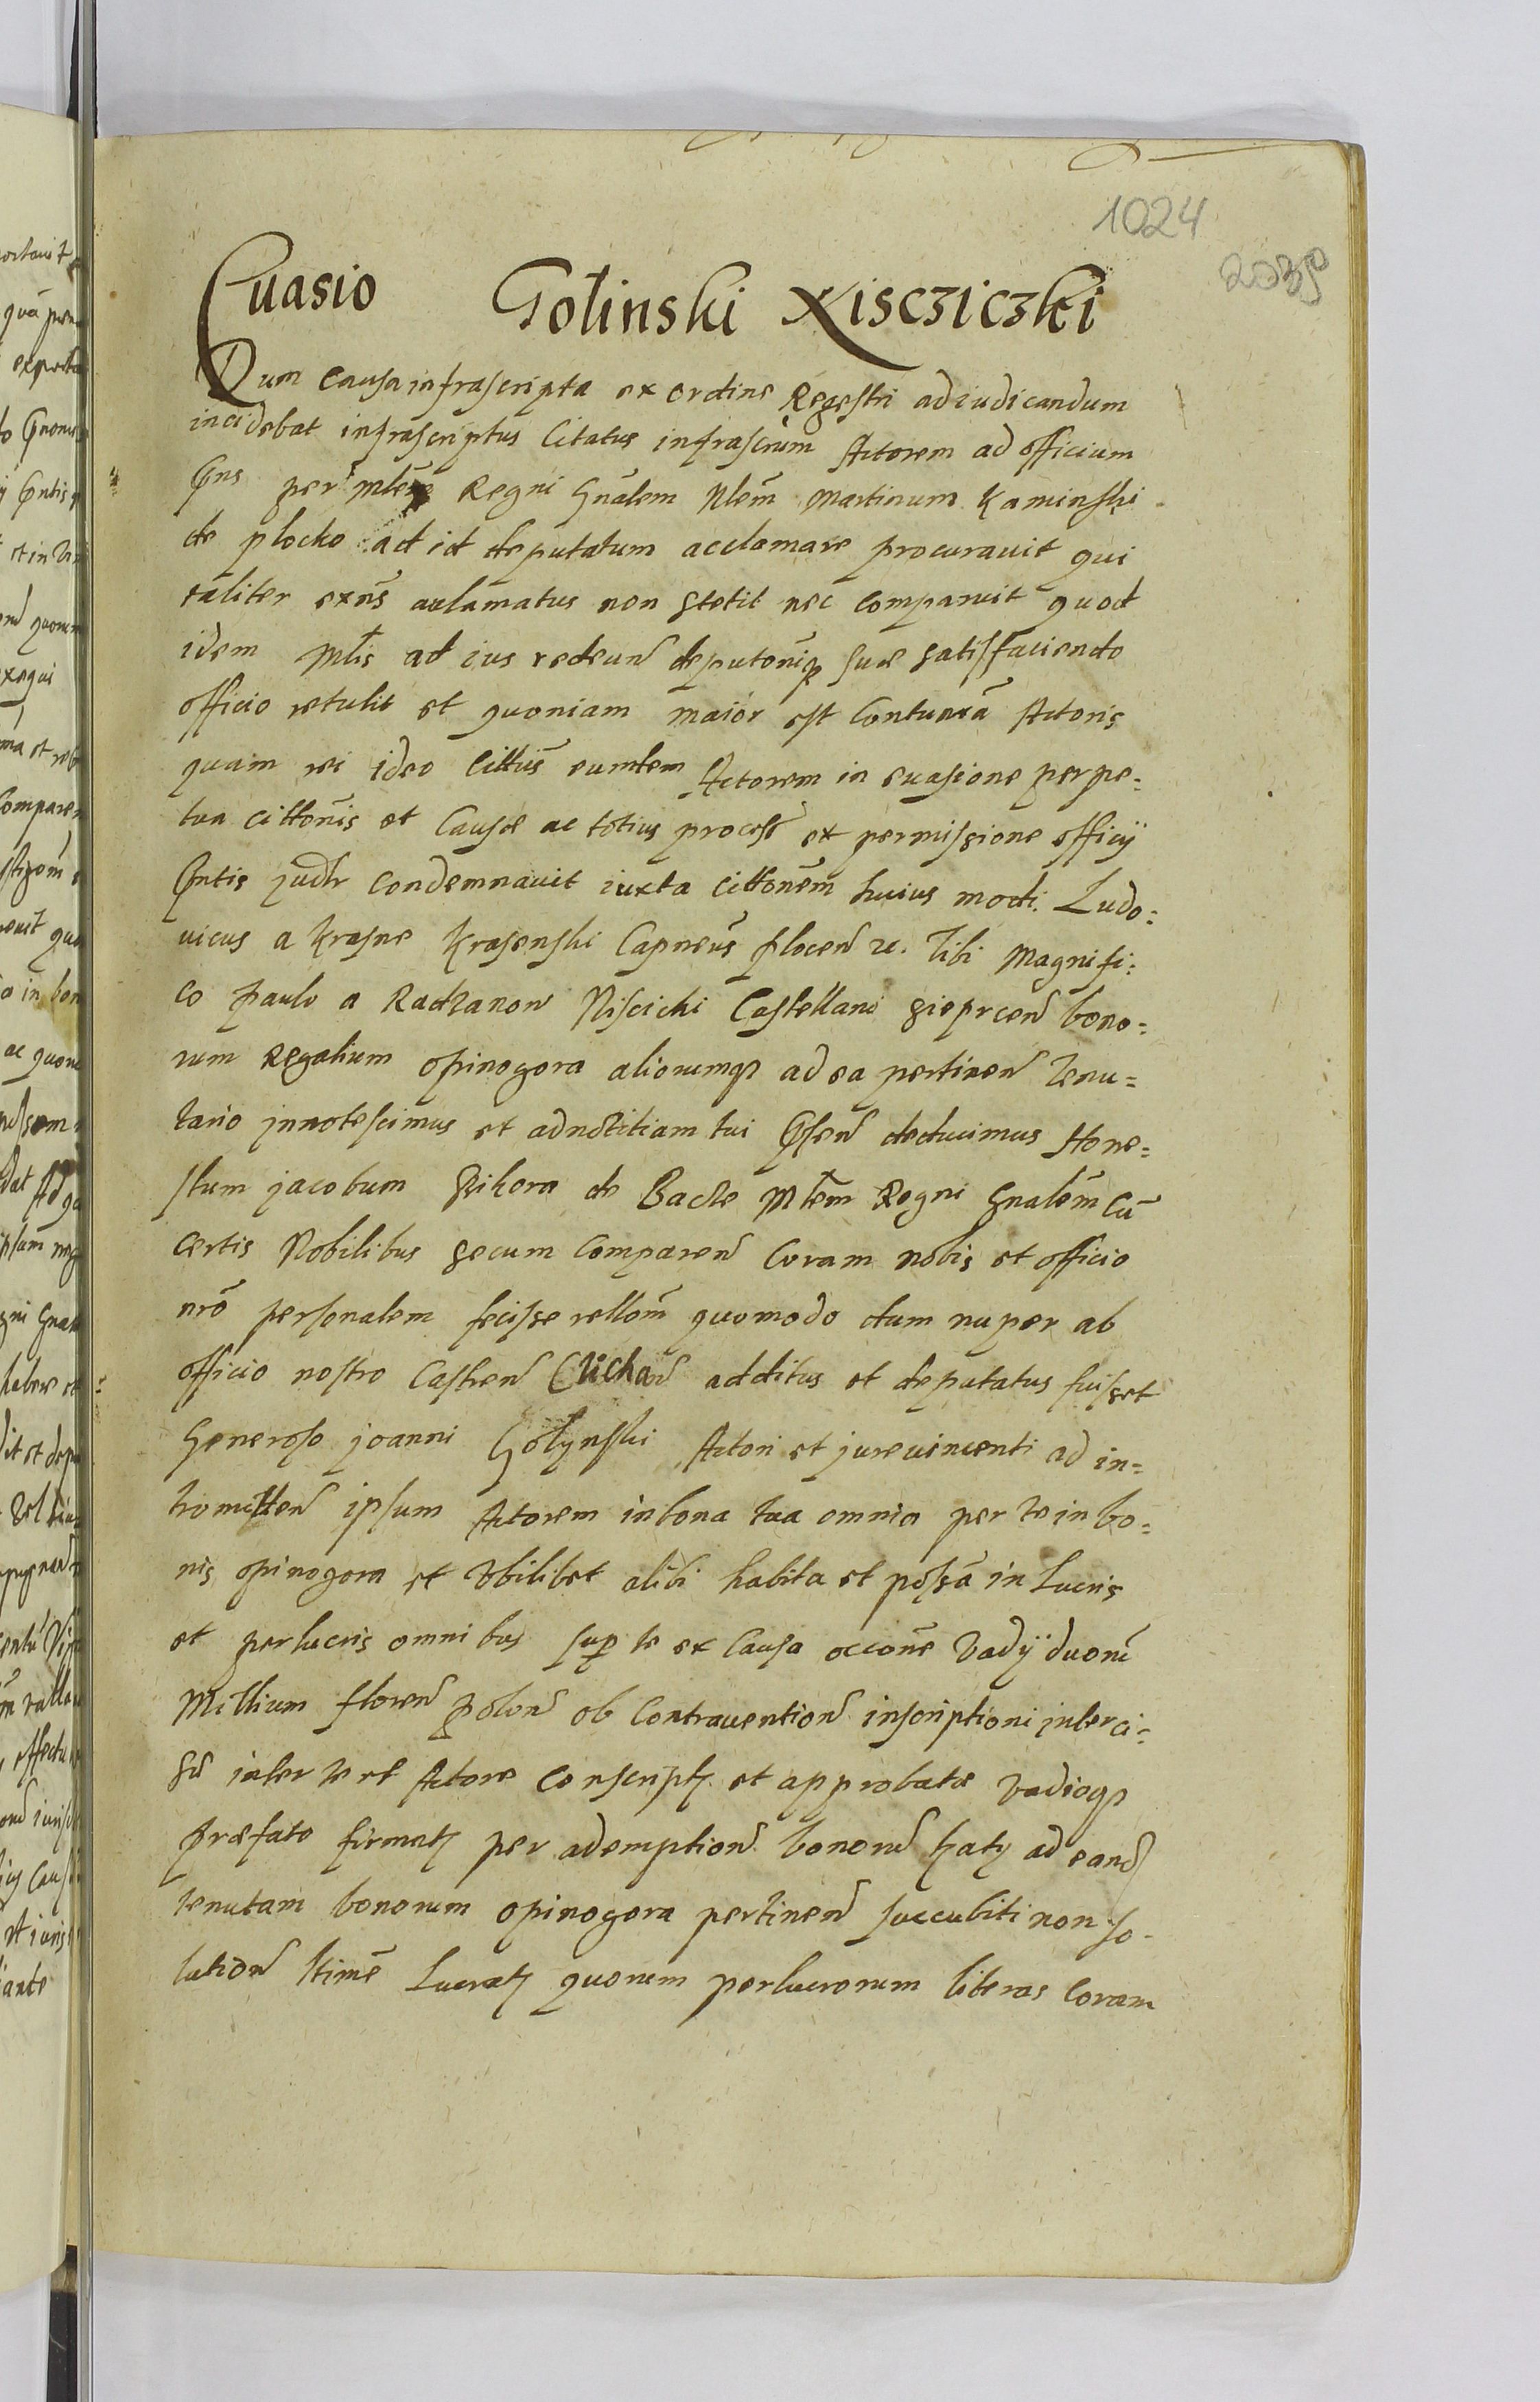 1024
Euasio Golinski Xisczicżki
Dum causa infrascripta ex ordine Regestri adiudicandum
incidebat infrascriptus Citatus infrascrũm Actorem ad officium
pñs per Regni Gñalem Nlem̃ Martinum Kaminski
de plocko ad id deputatum acclamare procurauit qui
taliter exñs acclamatus non stetit nec comparuit quod
idem Mlis̃ ad ius redeuñ suæ satisfaciendo
officio retulit et quoniam maior est Contumã Actoris
quam rei ideo Cittus̃ eundem Actorem in euasione perpe=
tua cittonis̃ et Causæ ac totius process̃ ex permissione officij
pñtis judlr̃ condemnauit iuxta cittonem̃ huius modi. Ludo=
uicus a Krasne Krasenski Capneus̃ plocen̄ zc. Tibi Magnifi=
co paulo a Radzanow Niscicki Castellano sieprcen̄ bono=
rum Regalium opinogora aliorumq̨ ad ea pertinen̄ tenu=
tario jnnotescimus et ad notitiam tui deducimus Hone=
stum jacobum Sikora de Mlem̃ Regni Gnalem̃ Cũ
certis Nobilibus secum Comparen̄ Coram nobis et officio
nrõ personalem fecisse rellom̃ quomodo dum nuper ab
officio nostro Castren̄ Czichan̄ additus et deputatus fuisset
Generoso joanni Golynski Actori et jureuincenti ad in=
tromitten̄ ipsum Actorem in bona tua omnia per te in bo=
nis opinogora et vbilibet alibi habita et possã in lucris
et perlucris omnibus sup̱ te ex Causa occone̴ vadij duorũ
Millium floren̄ polon̄ ob Contrauention̄ inscriptioni interci=
sæ inter te et Actore conscript̨ et approbatæ vadioq̨
præfato firmat̨ per ademption̄ bonorũ ad eand̄
tenutam bonorum opinogora pertinen̄ succubiti non so=
lution̄ ltimẽ lucrat̨ quorum perlucrorum literas Coram